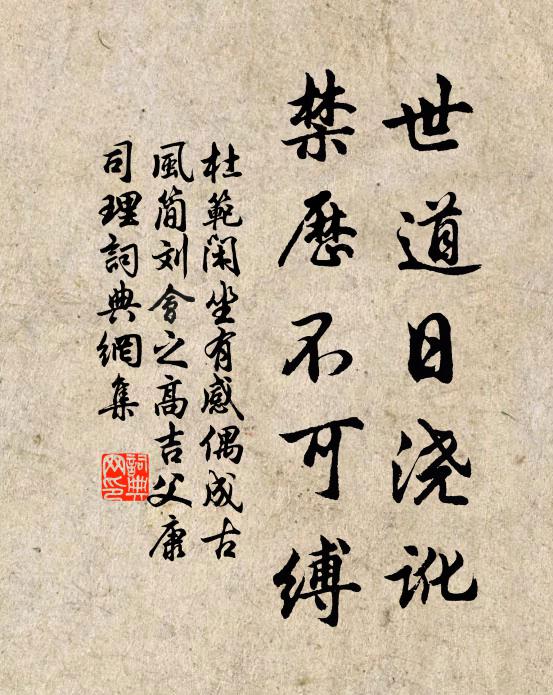 世道日浇讹
禁历不可缚
杜範闲坐有感偶成古
風简刘會之高吉父康
司理詞典網集
詞典网印